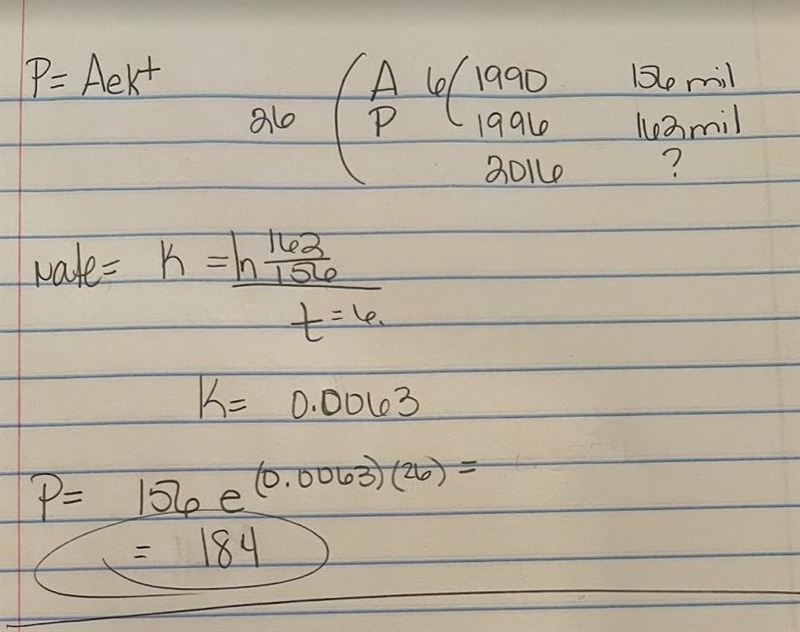 P = Aekt
A 6 ( 1990 156 mil
26 ( P 1996 162 mil
2016 ?
rate = K = ln 162/156
t = 6.
K = 0.0063
P = 156 e (0.0063)(26) =
= 184